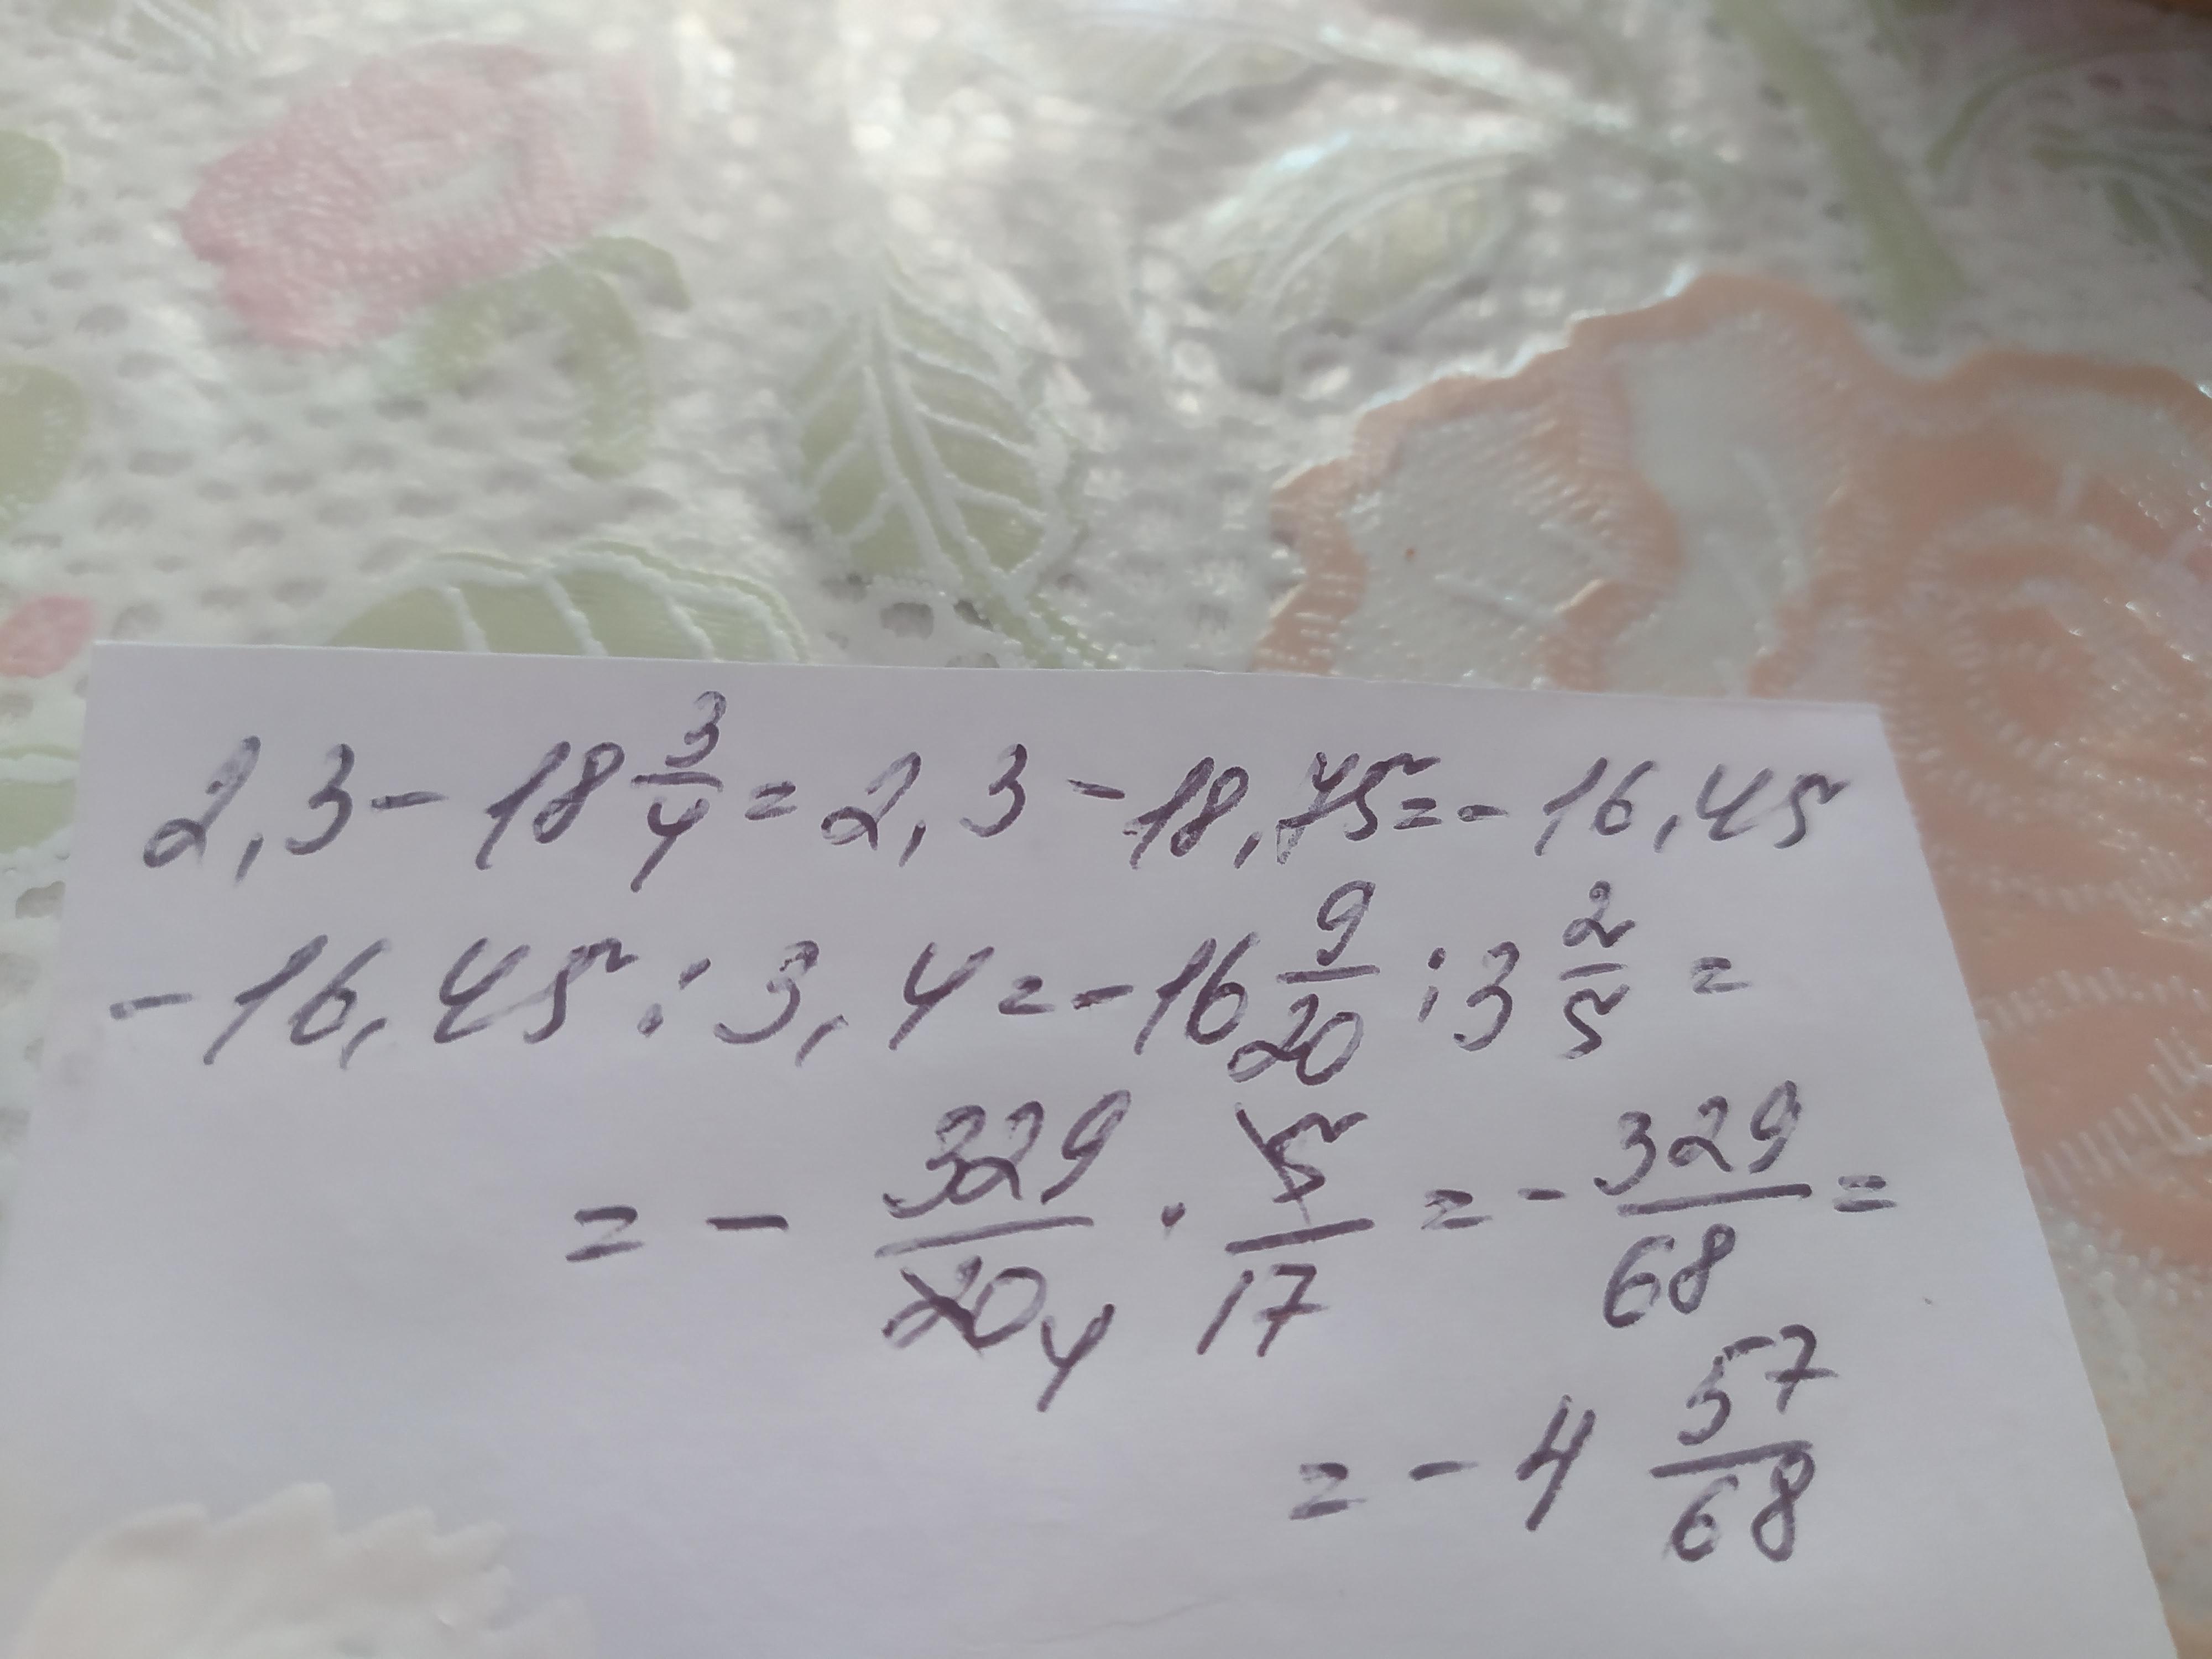 2,3 - 18 3/4 = 2,3 - 18,75 = - 16,45
- 16,45 : 3,4 = - 16 9/20 : 3 2/5 =
= - 329/20 4 · 5/17 = - 329/68 =
= - 4 57/68